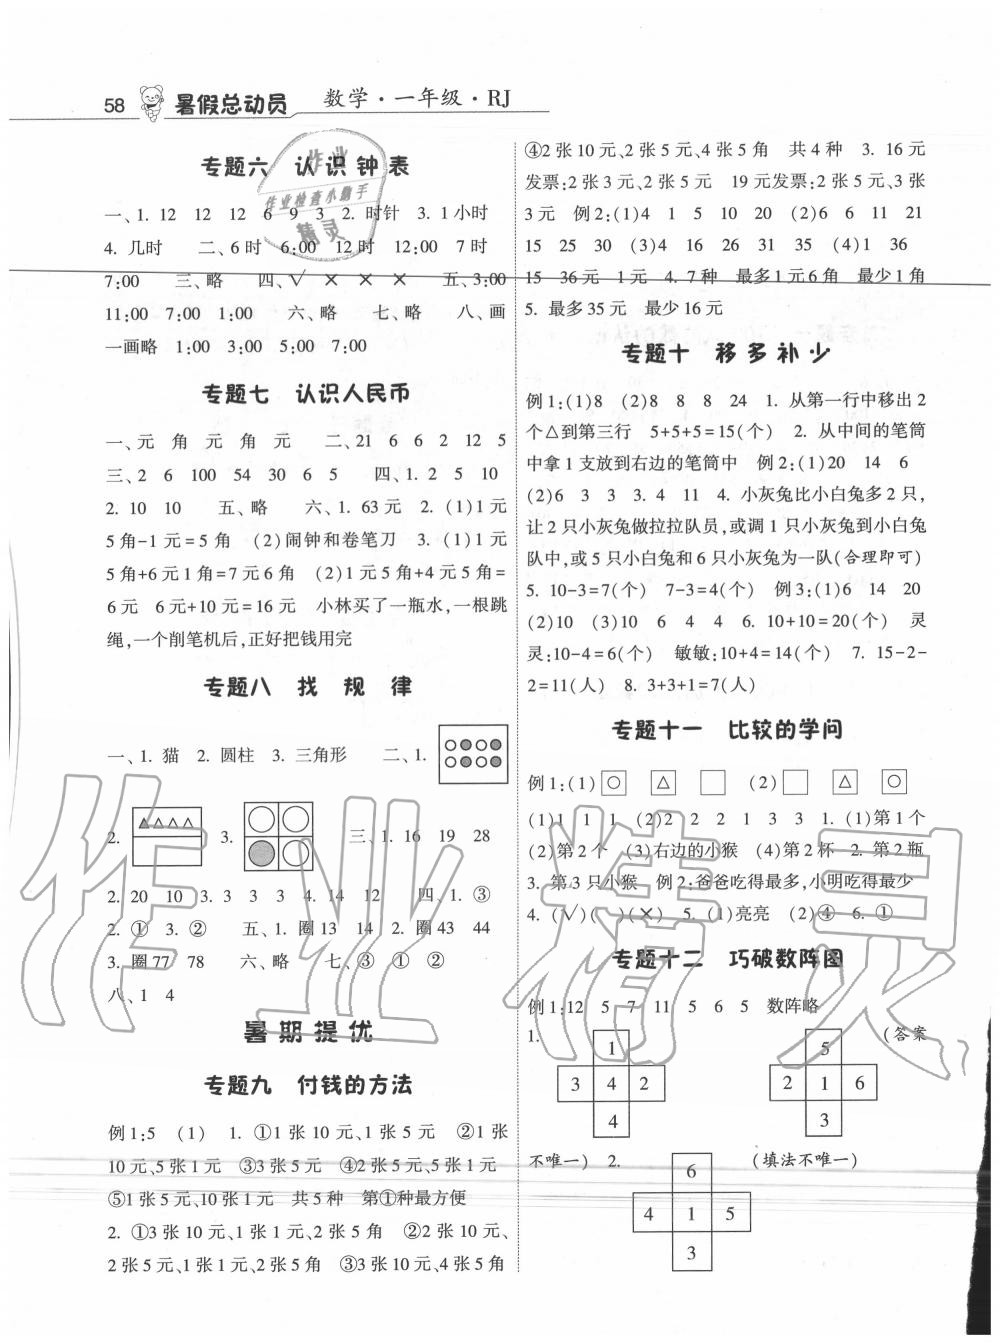 58 暑假总动员 数学·一年级·RJ
专题六 认识钟表
一、1. 12 12 12 6 9 3 2. 时针 3. 1小时
4. 几时 二、6时 6:00 12时 12:00 7时
7:00 三、略 四、√ × × × 五、3:00
11:00 7:00 1:00 六、略 七、略 八、画
一画略 1:00 3:00 5:00 7:00
专题七 认识人民币
一、元 角 元 角 元 二、21 6 6 2 12 5
三、2 6 100 54 30 6 5 四、1. 2 5 10
2. 10 10 五、略 六、1. 63元 2. (1)1元
5角-1元=5角 (2)闹钟和卷笔刀 3. (1)1元
5角+6元1角=7元6角 (2)1元5角+4元5角=
6元 6元+10元=16元 小林买了一瓶水,一根跳
绳,一个削笔机后,正好把钱用完
专题八 找规律
一、1. 猫 2. 圆柱 3. 三角形 二、1.
2. 3. 三、1. 16 19 28
2. 20 10 3. 3 3 3 4. 14 12 四、1. ③
2. ① 3. ② 五、1. 圈13 14 2. 圈43 44
3. 圈77 78 六、略 七、③ ① ②
八、1 4
暑期提优
专题九 付钱的方法
例1:5 (1) 1. ①1张10元、1张5元 ②1张
10元、5张1元 ③3张5元 ④2张5元、5张1元
⑤1张5元、10张1元 共5种 第①种最方便
2. ①3张10元、1张1元、2张5角 ②2张10元、
2张5元、1张1元、2张5角 ③3张10元、4张5角
④2张10元、2张5元、4张5角 共4种 3. 16元
发票:2张3元、2张5元 19元发票:2张5元、3张
3元 例2:(1)4 1 5 10 20 (2)6 6 11 21
15 25 30 (3)4 16 26 31 35 (4)1 36
15 36元 1元 4. 7种 最多1元6角 最少1角
5. 最多35元 最少16元
专题十 移多补少
例1:(1)8 (2)8 8 8 24 1. 从第一行中移出2
个△到第三行 5+5+5=15(个) 2. 从中间的笔筒
中拿1支放到右边的笔筒中 例2:(1)20 14 6
(2)6 3 3 3. 4 11 4. 小灰兔比小白兔多2只,
让2只小灰兔做拉拉队员,或调1只小灰兔到小白兔
队中,或5只小白兔和6只小灰兔为一队(合理即可)
5. 10-3=7(个) 7-3=4(个) 例3:(1)6 14 20
(2)10 (3)10 6 4 4 6. 10+10=20(个) 灵
灵:10-4=6(个) 敏敏:10+4=14(个) 7. 15-2-
2=11(人) 8. 3+3+1=7(人)
专题十一 比较的学问
例1:(1) ○ △ (2) △ ○
(1)1 1 1 (2)2 2 2 1 3 3 1. (1)第1个
(2)第2个 (3)右边的小猴 (4)第2杯 2. 第2瓶
3. 第3只小猴 例2:爸爸吃得最多,小明吃得最少
4. (√)( )(×) 5. (1)亮亮 (2)④ 6. ①
专题十二 巧破数阵图
例1:12 5 7 11 5 6 5 数阵略
1. (答案
1 5
3 4 2 2 1 6
4 3
不唯一) 2. (填法不唯一)
6
4 1 5
3
作业
作业检查小助手
精灵
作业精灵